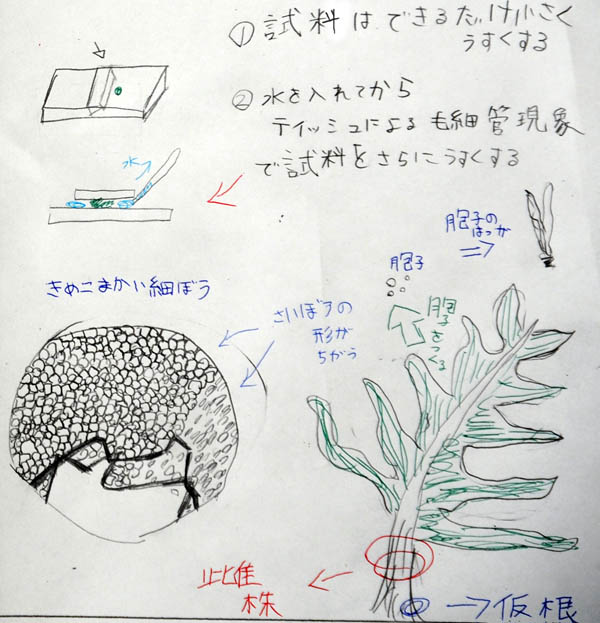 ① 試料はできるだけ小さく
うすくする
② 水を入れてから
ティッシュによる毛細管現象
で試料をさらにうすくする
水
胞子の
はつが
胞子
胞子を
つくる
きめこまかい細ぼう
さいぼうの
形が
ちがう
雌
株
→仮根